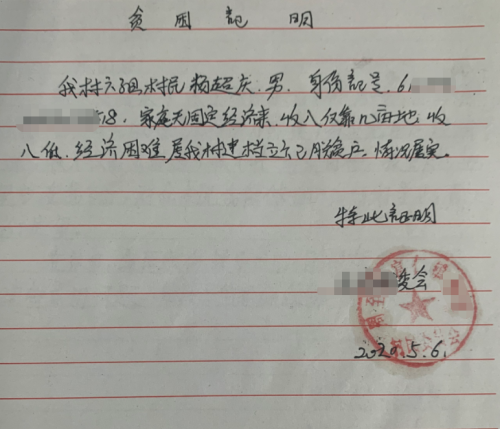 贫困记明
我村六组村民杨超庆.男.身份记号.6
8.家庭无固定经济来.收入仅靠几亩地.收
入低.经济困难.属我村建档立卡已脱贫户.情况属实。
特此记明
委会
2020.5.6.